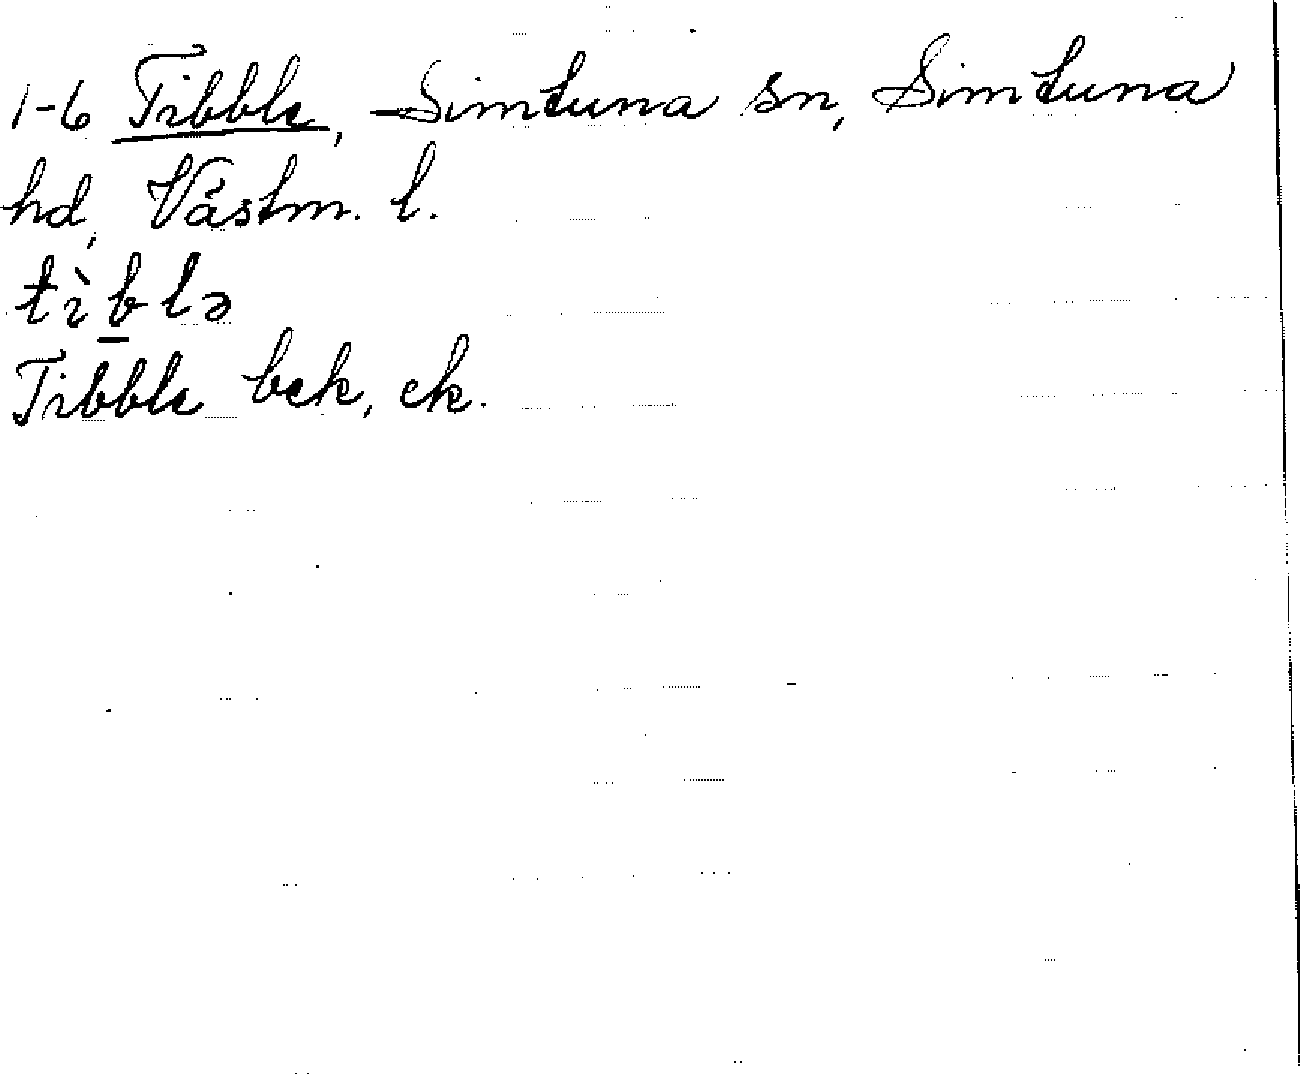 1-6 Tibble, Simtuna sn, Simtuna
hd, Västm. l.
tìb̲lə
Tibble bek, ek.